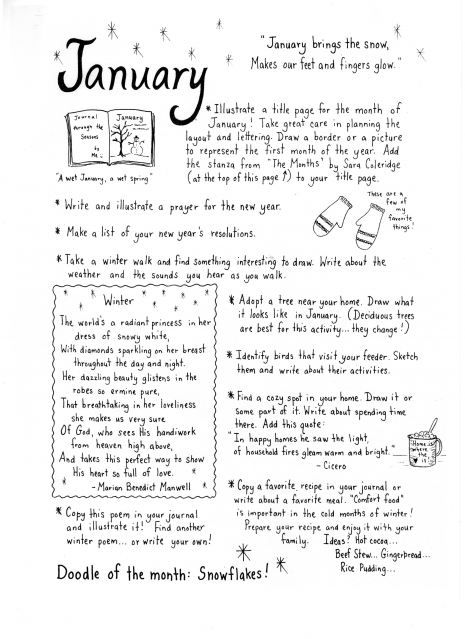 "January brings the snow,
Makes our feet and fingers glow."
January
Journal
through the
Seasons
by
Me.
January
"A wet January, a wet spring"
* Illustrate a title page for the month of
January! Take great care in planning the
layout and lettering. Draw a border or a picture
to represent the first month of the year. Add
the stanza from "The Months" by Sara Coleridge
(at the top of this page ↑) to your title page.
These are a
few of
my
favorite
things!
* Write and illustrate a prayer for the new year.
* Make a list of your new year's resolutions.
* Take a winter walk and find something interesting to draw. Write about the
weather and the sounds you hear as you walk.
Winter
The world's a radiant princess in her
dress of snowy white,
With diamonds sparkling on her breast
throughout the day and night.
Her dazzling beauty glistens in the
robes so ermine pure,
That breathtaking in her loveliness
she makes us very sure
Of God, who sees His handiwork
from heaven high above,
And takes this perfect way to show
His heart so full of love.
- Marian Benedict Manwell
* Copy this poem in your journal
and illustrate it! Find another
winter poem... or write your own!
* Adopt a tree near your home. Draw what
it looks like in January. (Deciduous trees
are best for this activity... they change!)
* Identify birds that visit your feeder. Sketch
them and write about their activities.
* Find a cozy spot in your home. Draw it or
some part of it. Write about spending time
there. Add this quote:
"In happy homes he saw the light,
of household fires gleam warm and bright."
- Cicero
Home is
where
the
♥ is
* Copy a favorite recipe in your journal or
write about a favorite meal. "Comfort food"
is important in the cold months of winter!
Prepare your recipe and enjoy it with your
family. Ideas? Hot cocoa...
Beef Stew... Gingerbread...
Rice Pudding...
Doodle of the month: Snowflakes!